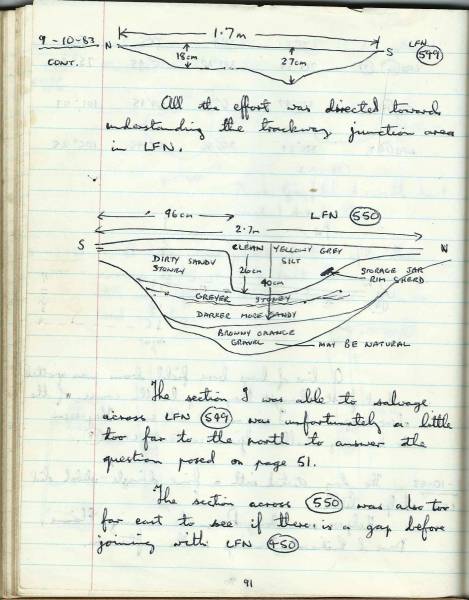 9-10-83
CONT.
1.7m
N
S
18cm
27cm
LFN
549
All the effort was directed towards
understanding the trackway junction area
in LFN.
LFN 550
96cm
2.7m
S
N
CLEAN YELLOWY GREY
SILT
DIRTY SANDY
STONEY
26cm
40cm
STORAGE JAR
RIM SHERD
GREYER STONEY
DARKER MORE SANDY
BROWNY ORANGE
GRAVEL
MAY BE NATURAL
The section I was able to salvage
across LFN 549 was unfortunately a little
too far to the north to answer the
question posed on page 51.
The section across 550 was also too
far east to see if there is a gap before
joining with LFN 450
91